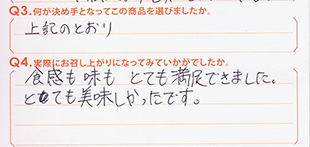 Q3.何が決め手となってこの商品を選びましたか。
上記のとおり
Q4.実際にお召し上がりになってみていかがでしたか。
食感も味も とても満足できました。
とても美味しかったです。